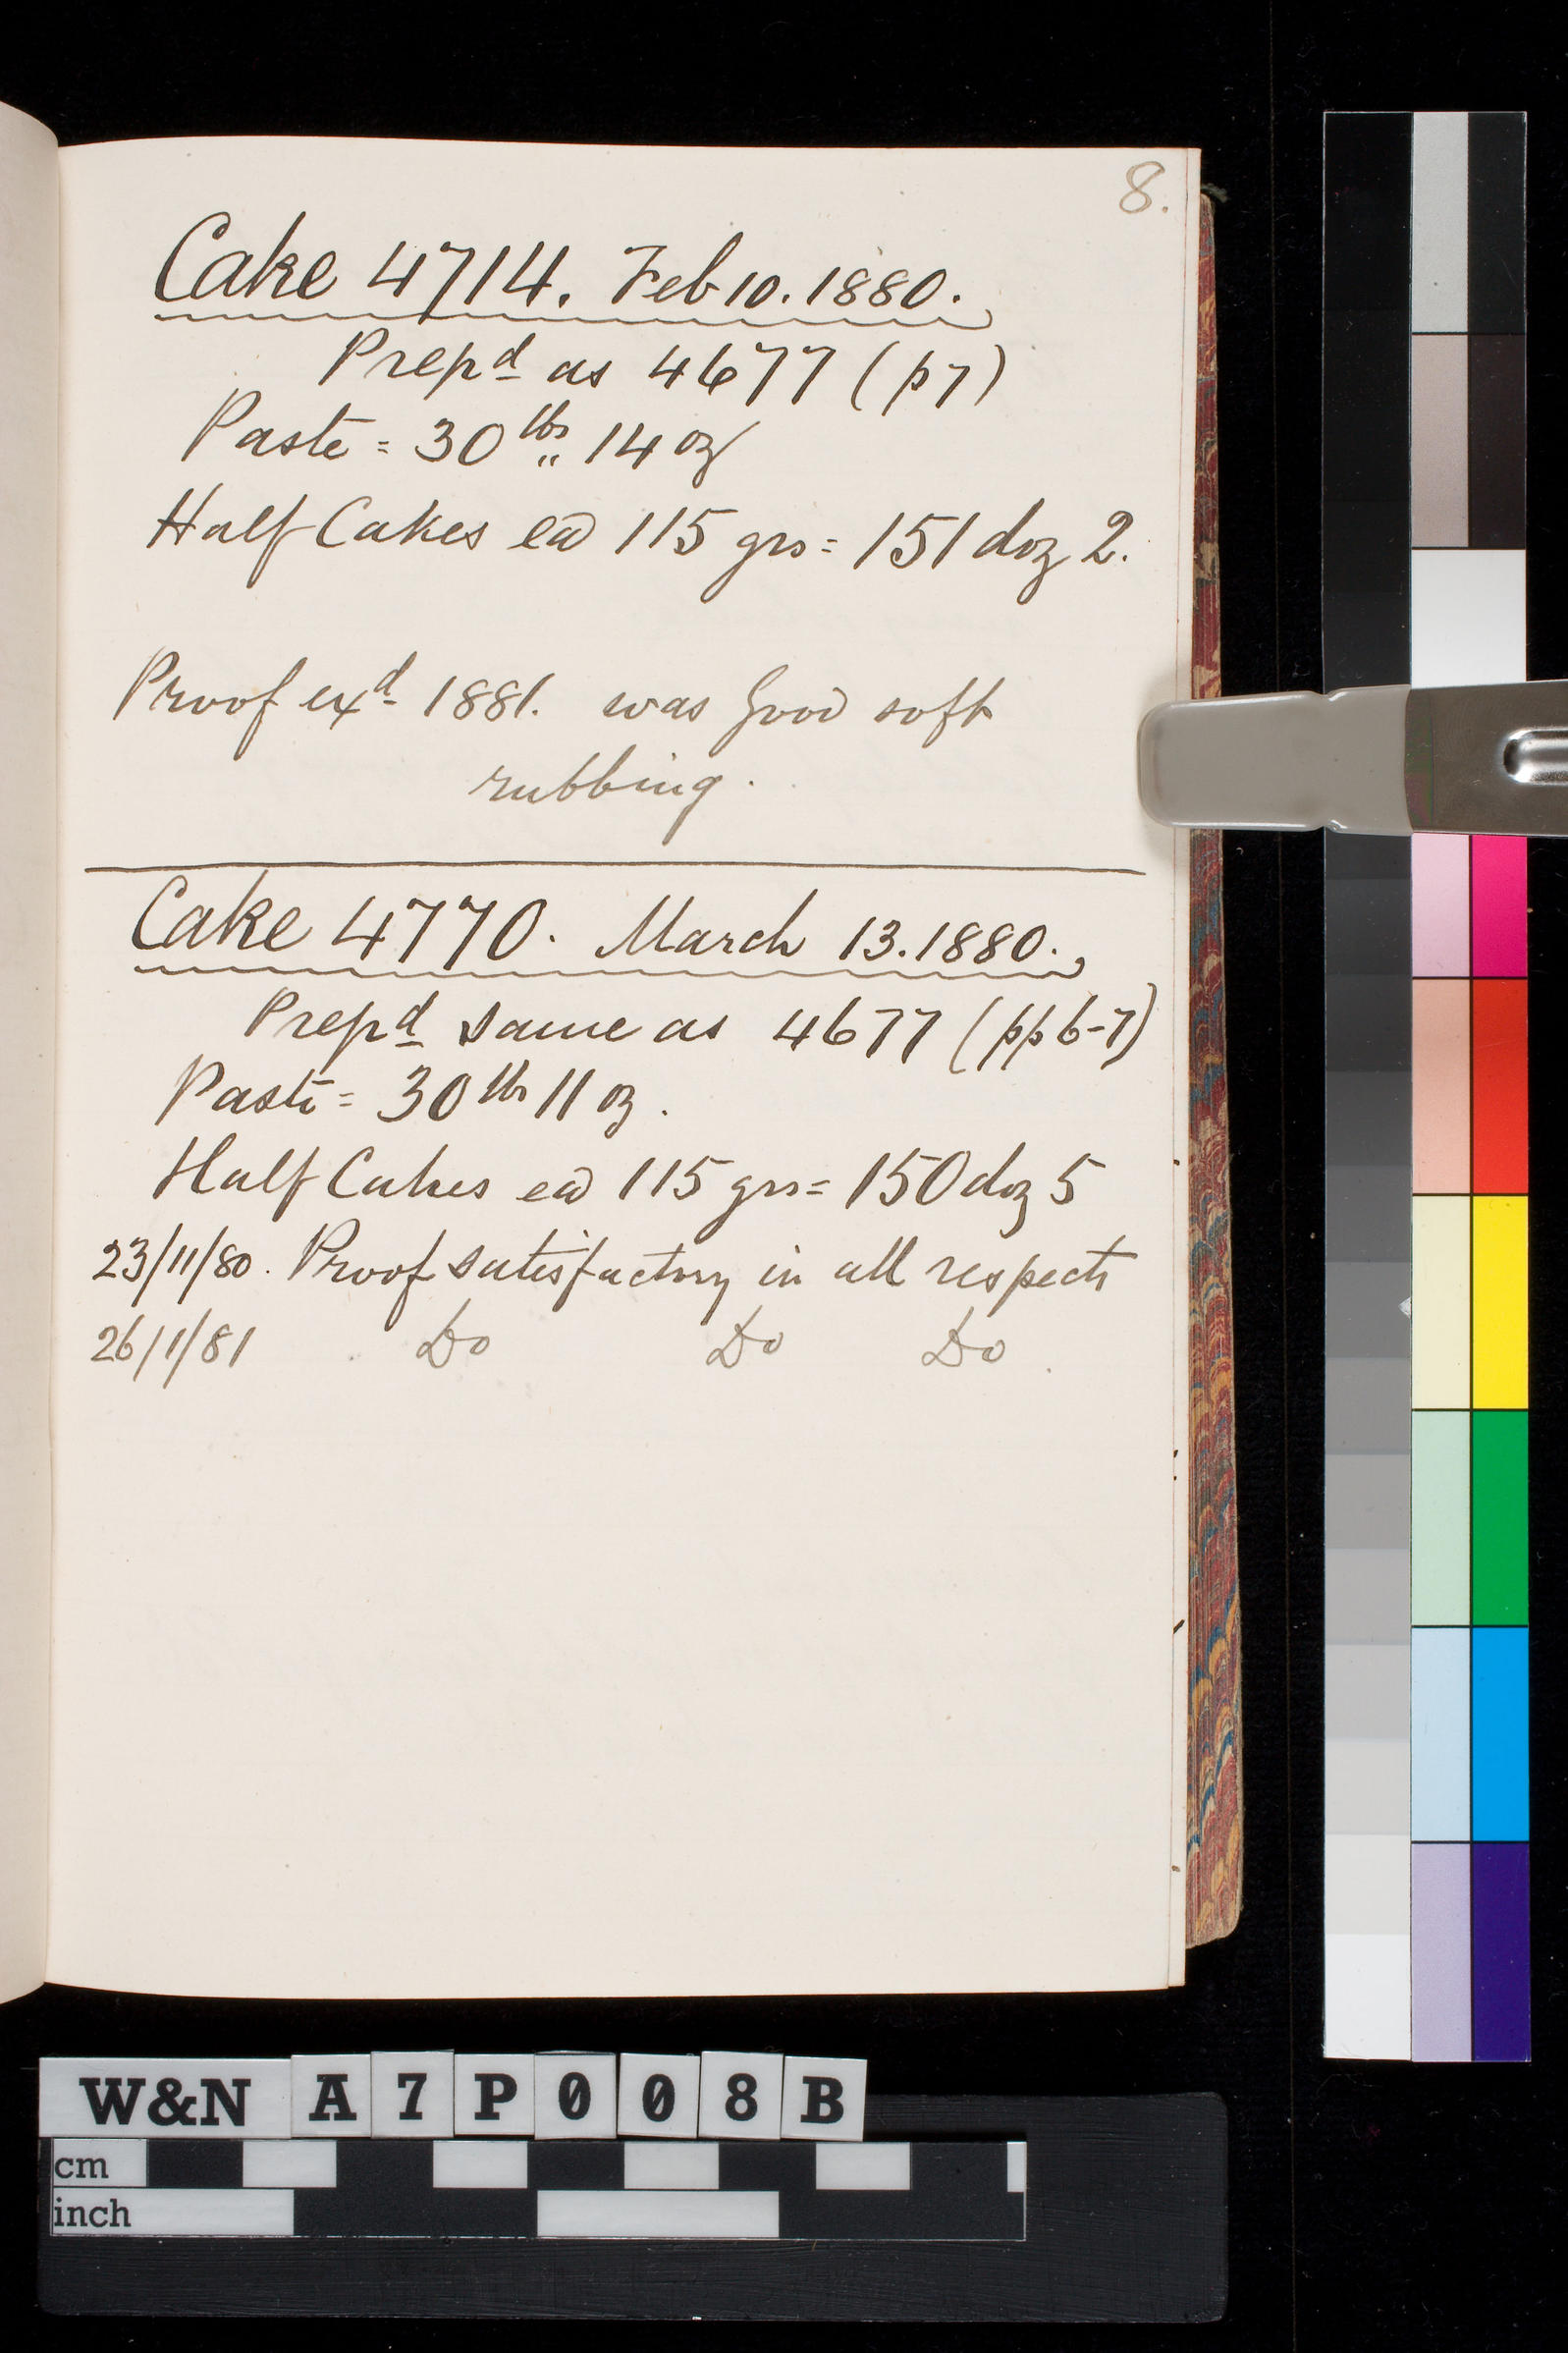 8.
Cake 4714. Feb 10. 1880.
Prepd as 4677 (p7)
Paste = 30 lbs,, 14 oz
Half Cakes ea 115 grs = 151 doz 2.
Proof exd 1881. was good soft
rubbing.
Cake 4770. March 13. 1880.
Prepd same as 4677 (pp 6-7)
Paste = 30 lbs 11 oz.
Half Cakes ea 115 grs = 150 doz 5
23/11/80. Proof satisfactory in all respects
26/1/81 Do Do Do
W&N A7P008B
cm
inch